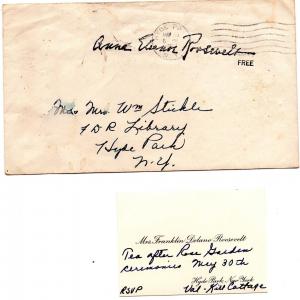 Anna Eleanor Roosevelt
FREE
Mrs. Wm Stickle
FDR Library
Hyde Park
N.Y.
Mrs. Franklin Delano Roosevelt
Tea after Rose Garden
ceremonies May 30th
Hyde Park, New York
RSVP Val-Kill Cottage